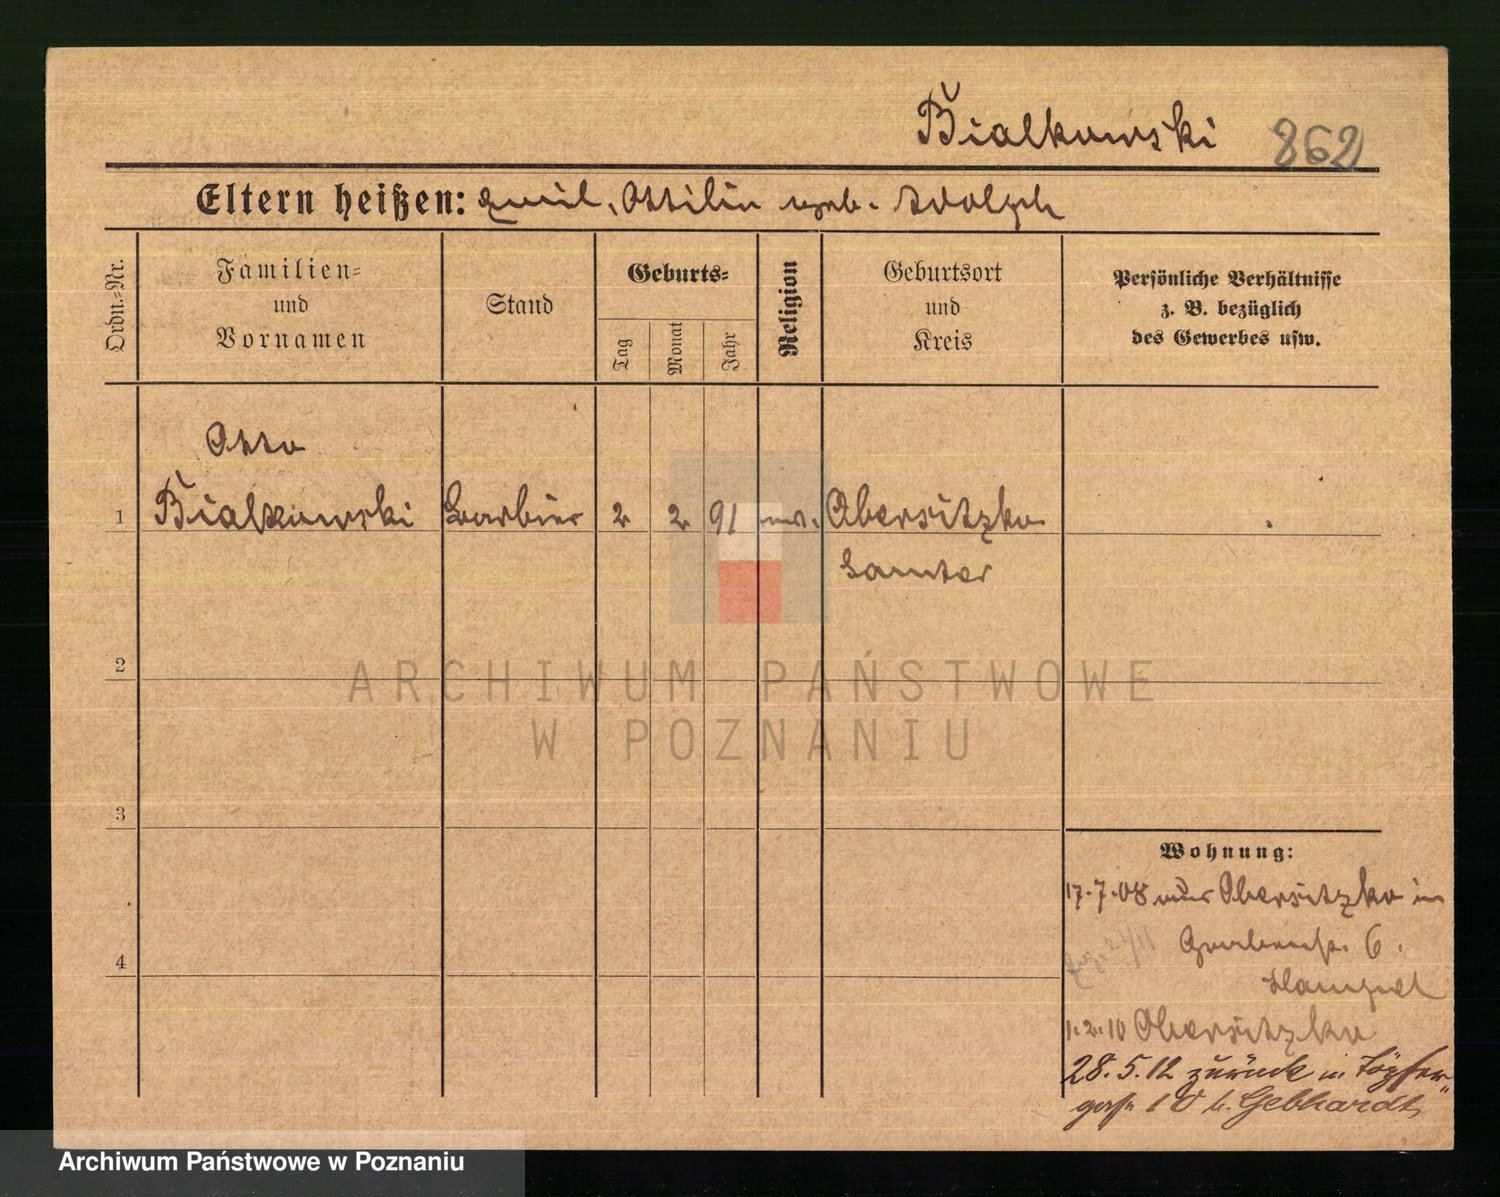 Bialkowski 862
Eltern heißen: Emil, Ottilie geb. Adolph
Ordn.-Nr.
Familien-
und
Vornamen
Stand
Geburts-
Tag
Monat
Jahr
Religion
Geburtsort
und
Kreis
Persönliche Verhältnisse
z. B. bezüglich
des Gewerbes usw.
Otto
1 Bialkowski Barbier 2 2 91 ev. Obersitzko
Samter
2
ARCHIWUM PAŃSTWOWE
W POZNANIU
3
Wohnung:
17.7.08 aus Obersitzko in
4
6.
1.2.10 Obersitzko
28.5.12 zurück in Töpfer-
gasse 10 b. Gebhardt
Archiwum Państwowe w Poznaniu